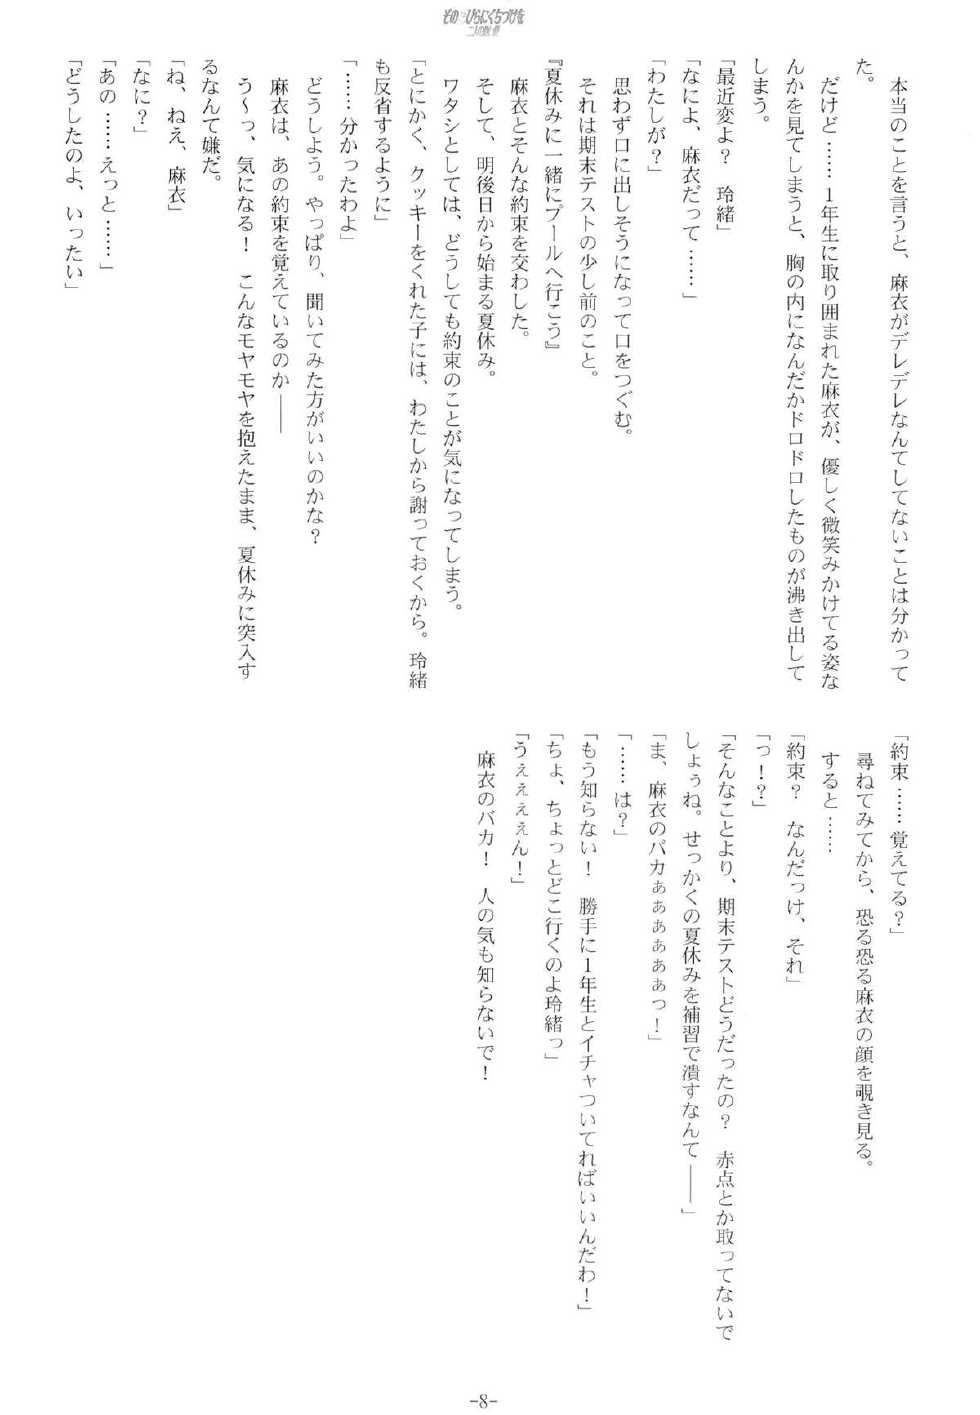 その花びらにくちづけを
本当のことを言うと、麻衣がデレデレなんてしてないことは分かって
た。
だけど……1年生に取り囲まれた麻衣が、優しく微笑みかけてる姿な
んかを見てしまうと、胸の内になんだかドロドロしたものが沸き出して
しまう。
「最近変よ？　玲緒」
「なによ、麻衣だって……」
「わたしが？」
思わず口に出しそうになって口をつぐむ。
それは期末テストの少し前のこと。
『夏休みに一緒にプールへ行こう』
麻衣とそんな約束を交わした。
そして、明後日から始まる夏休み。
ワタシとしては、どうしても約束のことが気になってしまう。
「とにかく、クッキーをくれた子には、わたしから謝っておくから。玲緒
も反省するように」
「……分かったわよ」
どうしよう。やっぱり、聞いてみた方がいいのかな？
麻衣は、あの約束を覚えているのか――
う～っ、気になる！　こんなモヤモヤを抱えたまま、夏休みに突入す
るなんて嫌だ。
「ね、ねえ、麻衣」
「なに？」
「あの……えっと……」
「どうしたのよ、いったい」
「約束……覚えてる？」
尋ねてみてから、恐る恐る麻衣の顔を覗き見る。
すると……
「約束？　なんだっけ、それ」
「っ！？」
「そんなことより、期末テストどうだったの？　赤点とか取ってないで
しょうね。せっかくの夏休みを補習で潰すなんて――」
「ま、麻衣のバカぁぁぁぁぁぁっ！」
「……は？」
「もう知らない！　勝手に1年生とイチャついてればいいんだわ！」
「ちょ、ちょっとどこ行くのよ玲緒っ」
「うぇぇぇぇん！」
麻衣のバカ！　人の気も知らないで！
-8-